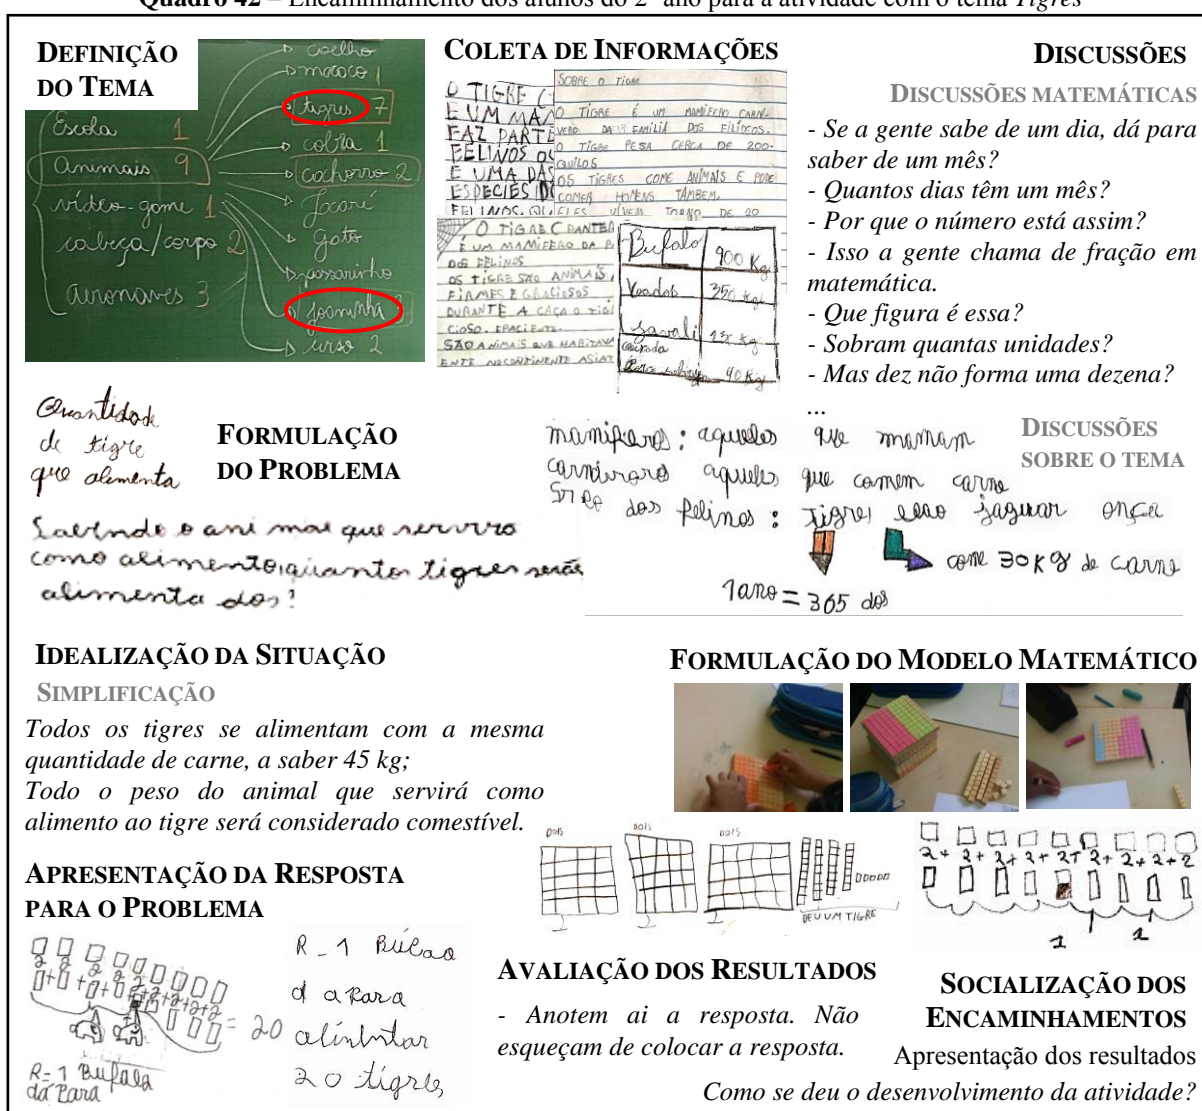 Quadro 42 – Encaminhamento dos alunos do 2º ano para a atividade com o tema Tigres
DEFINIÇÃO
DO TEMA
Escola 1
animais 9
vídeo-game 1
cabeça/corpo 2
aeronaves 3
coelho
macaco 1
tigres 7
cobra 1
cachorro 2
Jacaré
Gato
passarinho
joaninha
urso 2
COLETA DE INFORMAÇÕES
O TIGRE (
E UM MAM
FAZ PARTE
FELINOS OU
E UMA DAS
ESPECIES DO
FELINOS. QU
SOBRE O TIGRE
O TIGRE É UM MAMÍFERO CARN-
VERO DA FAMILIA DOS FILÍDEOS.
O TIGRE PESA CERCA DE 200-
QUILOS
OS TIGRES COME ANIMAIS E PODE
COMER HOMENS TAMBEM.
ELES VIVEM TORNO DE 20
O TIGRE ( PANTER
É UM MAMIFERO DA
DOS FELINOS
OS TIGRE SÃO ANIMAIS
FIRMES E GRACIOSOS
DURANTE A CAÇA O TIG
CIOSO, EPACIENTE.
SÃO ANIMAIS QUE HABITAVA
ENTE NO CONTINENTE ASIAT
Bufalo 900 Kg
Veados 350 Kg
Javali
40 Kg
DISCUSSÕES
DISCUSSÕES MATEMÁTICAS
- Se a gente sabe de um dia, dá para
saber de um mês?
- Quantos dias têm um mês?
- Por que o número está assim?
- Isso a gente chama de fração em
matemática.
- Que figura é essa?
- Sobram quantas unidades?
- Mas dez não forma uma dezena?
...
Quantidade
de tigre
que alimenta
FORMULAÇÃO
DO PROBLEMA
Sabendo o ani mal que servira
como alimento, quantos tigres serão
alimenta dos?
DISCUSSÕES
SOBRE O TEMA
mamiferos: aqueles que mamam
carnivoros aqueles que comem carne
dos felinos: tigre, leao jaguar onça
come 30 kg de carne
1 ano = 365 dos
IDEALIZAÇÃO DA SITUAÇÃO
SIMPLIFICAÇÃO
Todos os tigres se alimentam com a mesma
quantidade de carne, a saber 45 kg;
Todo o peso do animal que servirá como
alimento ao tigre será considerado comestível.
FORMULAÇÃO DO MODELO MATEMÁTICO
DOIS DOIS DOIS
2 2 2
DEU UM TIGRE
2+ 2+ 2+ 2+ 2+ 2+ 2+2+2
1 1
APRESENTAÇÃO DA RESPOSTA
PARA O PROBLEMA
= 20
R= 1 Bufala
dá Para
R_ 1 Búfao
d a Para
alimintar
20 tigres
AVALIAÇÃO DOS RESULTADOS
- Anotem ai a resposta. Não
esqueçam de colocar a resposta.
SOCIALIZAÇÃO DOS
ENCAMINHAMENTOS
Apresentação dos resultados
Como se deu o desenvolvimento da atividade?